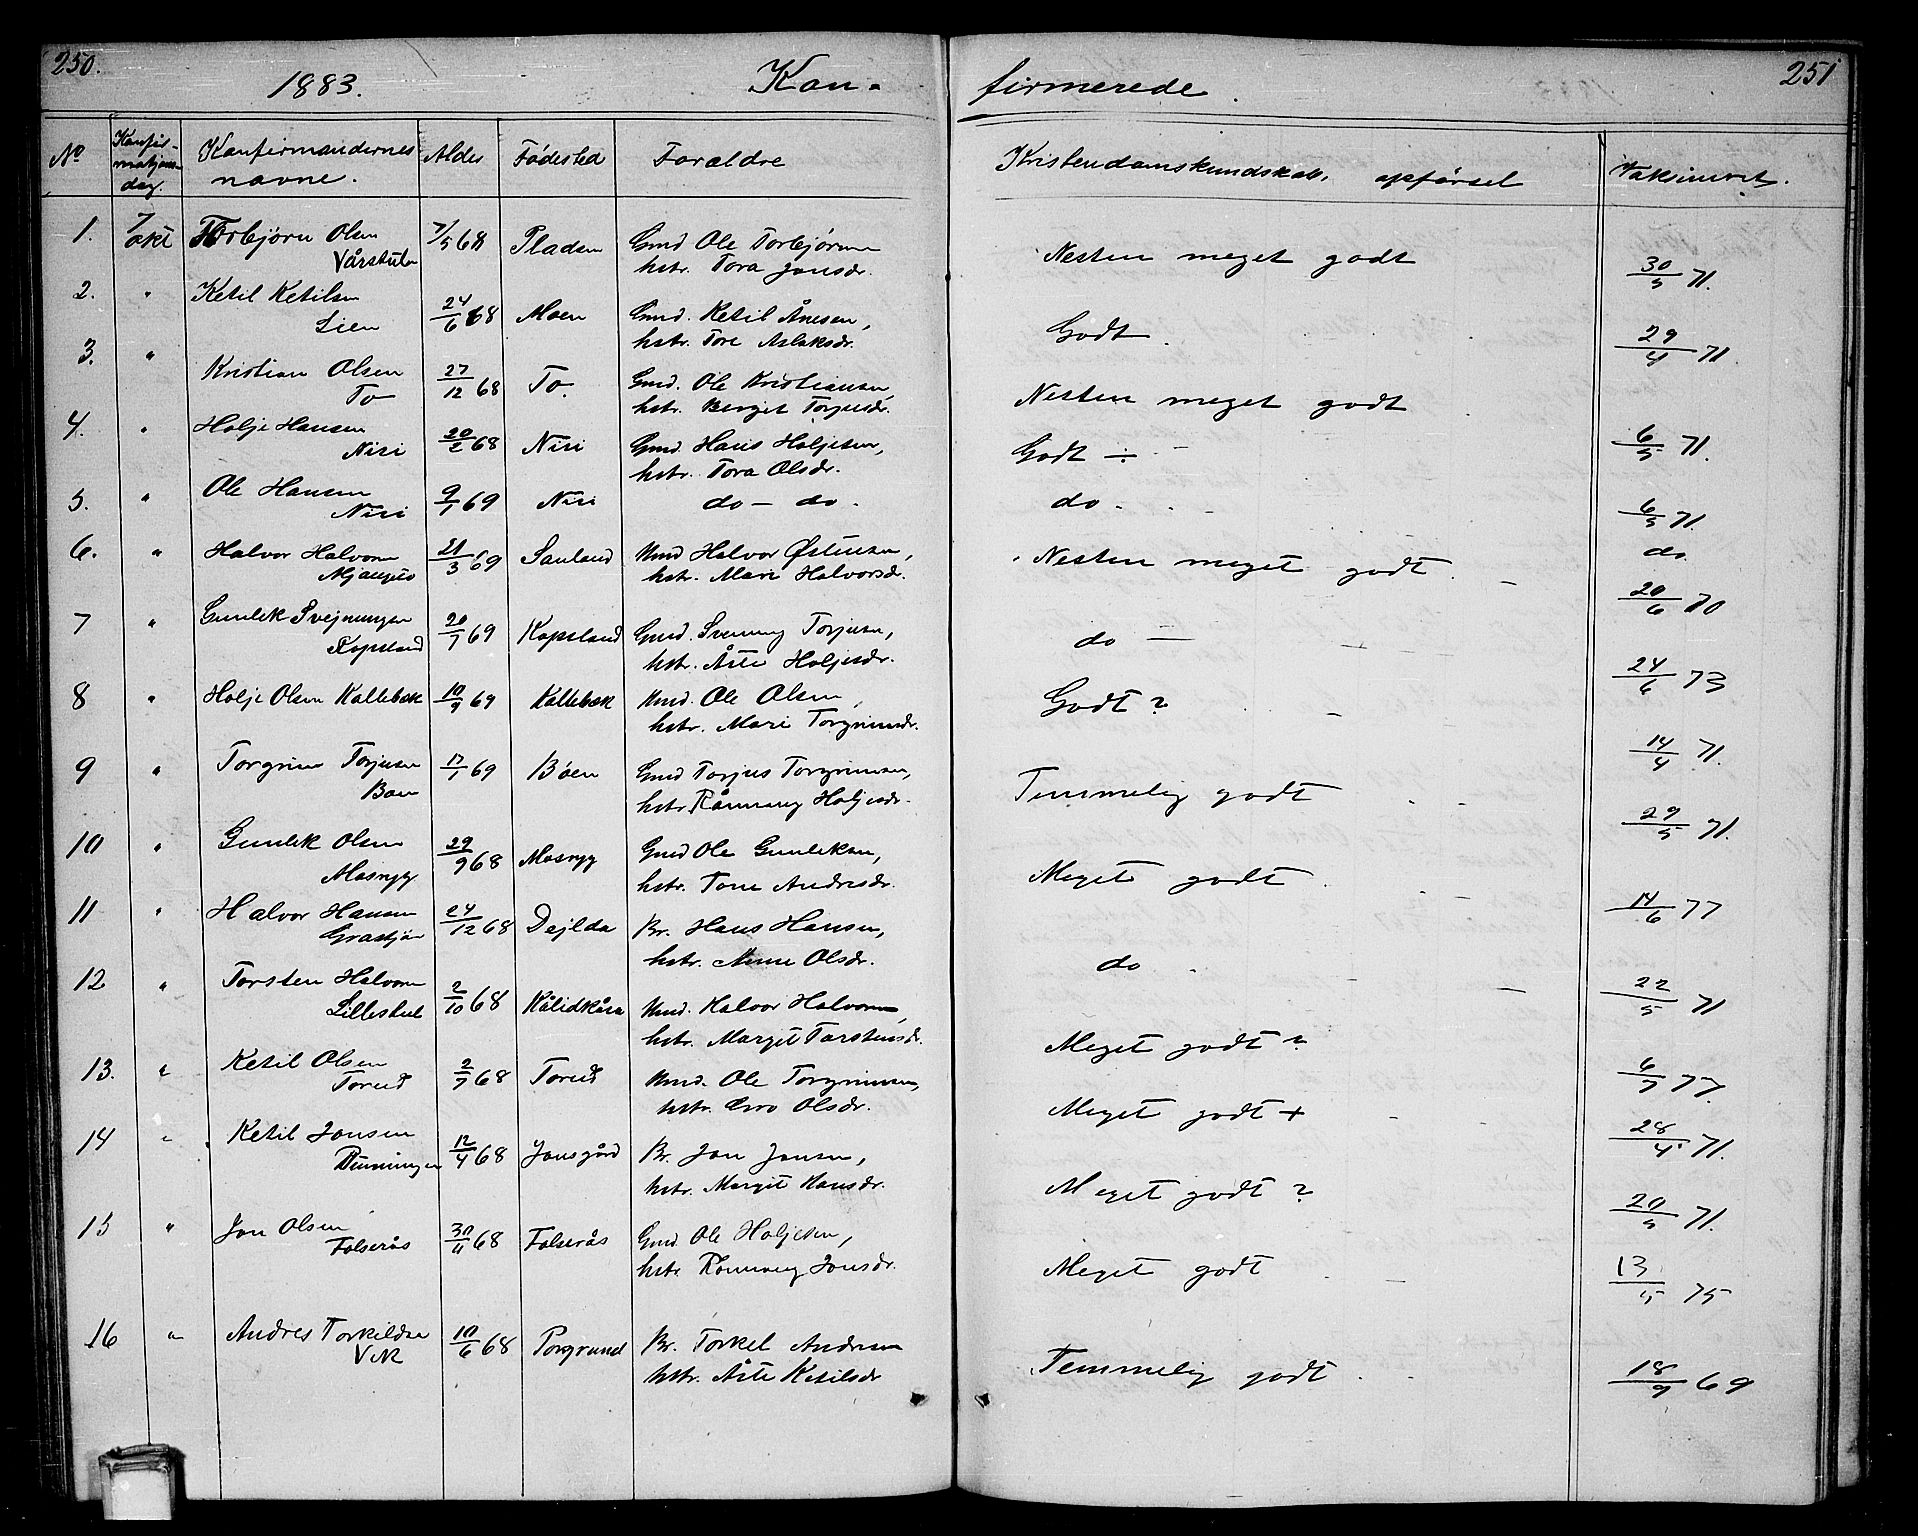 250.
1883.
Kon-
firmerede.
251
No
Konfir-
mations-
dag.
Konfirmandernes
navne.
Alder
Fødested
Forældre
Kristendomskundskab, opførsel
Vaksineret.
1. 7 okt Torbjørn Olsen 7/5 68 Pladsen Gmd Ole Torbjørnsen
Vårstul hstr. Tora Jonsdr. Nesten meget godt 30/5 71.
2. " Ketil Ketilsen 24/6 68 Moen Gmd. Ketil Ånesen,
Lien hstr. Tore Aslaksdr. Godt. 29/4 71.
3. " Kristian Olsen 27/12 68 To. Gmd. Ole Kristiansen,
To hstr. Berget Torjusdr. Nesten meget godt 6/5 71.
4. " Holje Hansen 20/2 68 Nisi Gmd. Hans Holjesen,
Nisi hstr. Tora Olsdr. Godt ÷ 6/5 71.
5. " Ole Hansen 9/1 69 Nisi do - do.
Nisi do. do
6. " Halvor Halvorsen 21/3 69 Sauland Hmd Halvor Østensen,
hstr. Mari Halvorsdr. Nesten meget godt. 20/6 70
7 " Gunlek Svejnungsen 20/7 69 Kopsland Gmd. Svenung Torjusen,
Kopsland hstr. Åste Holjesdr. do 24/6 73
8 " Holje Olsen Kallebæk 10/9 69 Kallebæk Hmd. Ole Olsen,
hstr. Mari Torgrimsdr. Godt? 14/4 71.
9 " Torgrim Torjusen 17/1 69 Böen Gmd Torjus Torgrimsen,
Böen hstr. Rånnaug Holjesdr. Temmelig godt 29/5 71.
10 " Gunlek Olsen 29/9 68 Mosnyg Gmd Ole Gunleksen,
Mosnyg hstr. Tone Andresdr. Meget godt. 14/6 77
11 " Halvor Hansen 24/12 68 Dejlda Br. Hans Hansen,
hstr. Anne Olsdr. do 22/5 71
12 " Torsten Halvorsen 2/10 68 Hmd. Halvor Halvorsen,
Lillestul hstr. Margit Torstensdr. Meget godt? 6/7 77.
13. " Ketil Olsen 2/7 68 Torud Hmd. Ole Torgrimsen,
Torud hstr. Gro Olsdr. Meget godt + 28/4 71.
14 " Ketil Jonsen 12/4 68 Jonsgård Br. Jon Jonsen,
hstr. Margit Hansdr. Meget godt? 20/5 71.
15 " Jon Olsen 30/11 68 Folserås Gmd. Ole Holjesen,
Folserås hstr. Rønnaug Jonsdr. Meget godt 13/5 75
16 " Andres Torkildsen 10/6 68 Porgrund Br. Torkel Andresen
Vik hstr. Åste Ketilsdr Temmelig godt. 18/9 69